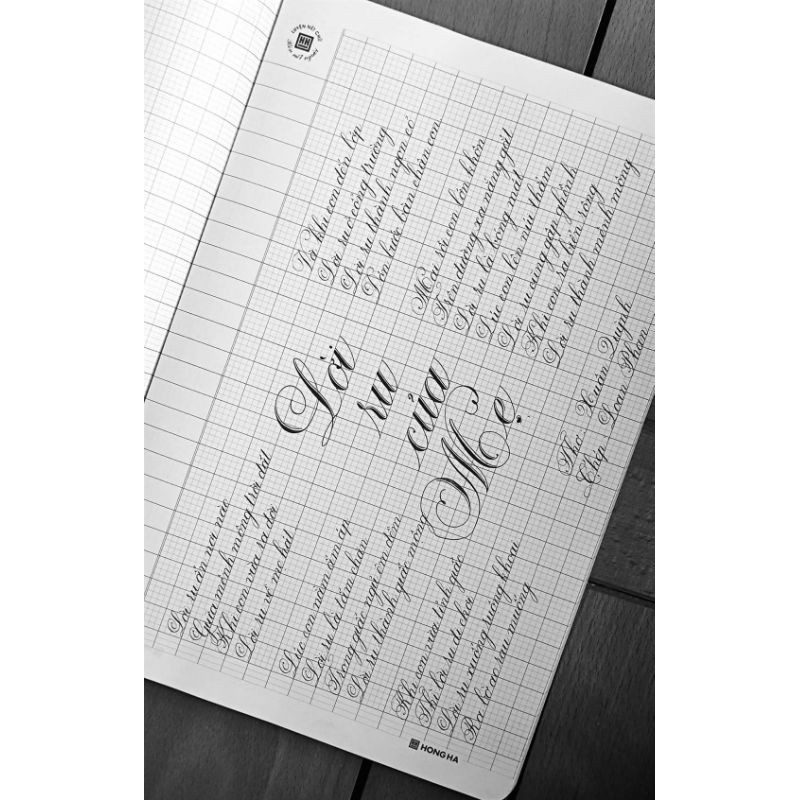 LUYỆN NÉT CHỮ
Lời
ru
của
Mẹ
Lời ru ẩn nơi nao
Giữa mênh mông trời đất
Khi con vừa ra đời
Lời ru về mẹ hát
Lúc con nằm ấm áp
Lời ru là tấm chăn
Trong giấc ngủ êm đềm
Lời ru thành giấc mộng
Khi con vừa tỉnh giấc
Thì lời ru đi chơi
Lời ru xuống ruộng khoai
Ra bờ ao rau muống
Và khi con đến lớp
Lời ru ở cổng trường
Lời ru thành ngọn cỏ
Đón bước bàn chân con
Mai rồi con lớn khôn
Trên đường xa nắng gắt
Lời ru là bóng mát
Lúc con lên núi thẳm
Lời ru cũng gập ghềnh
Khi con ra biển rộng
Lời ru thành mênh mông
Thơ - Xuân Quỳnh
Chép - Phan
HONG HA